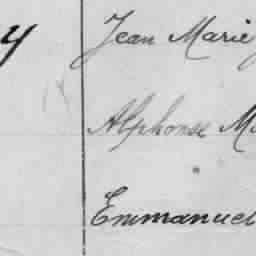 y Jean Marie
Alphonse M
Emmanuel